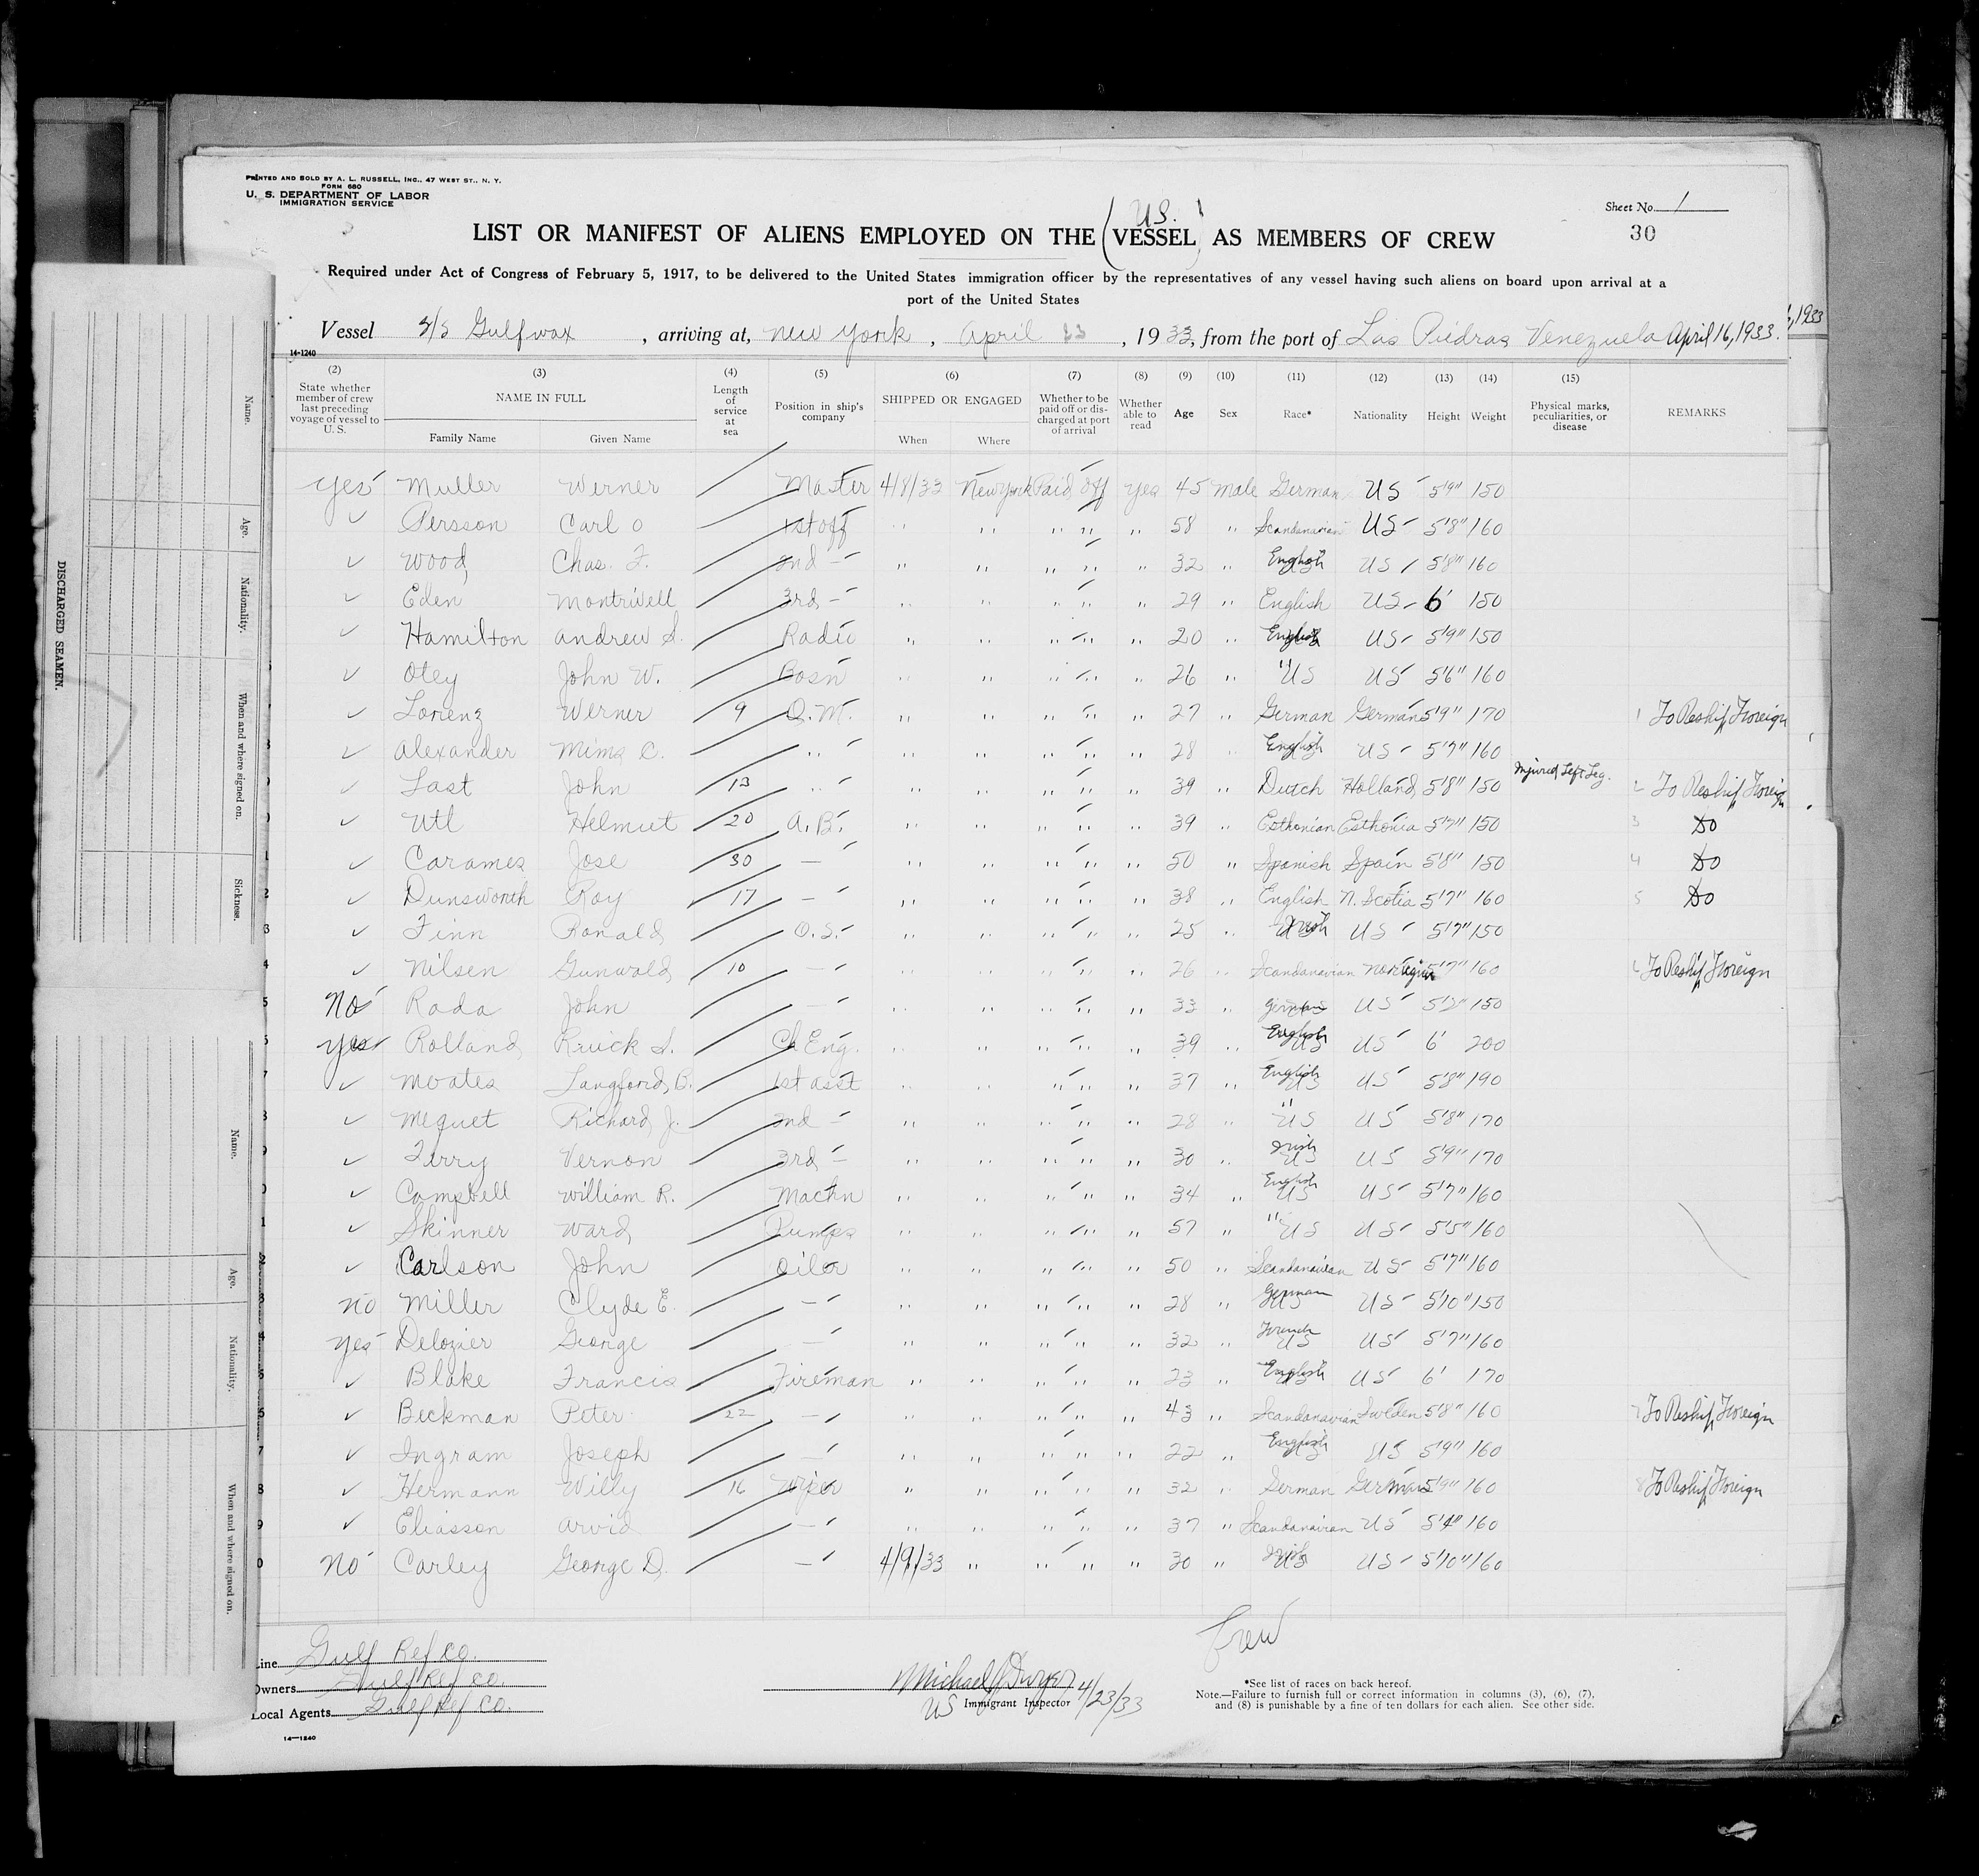 PRINTED AND SOLD BY A. L. RUSSELL, INC., 47 WEST ST., N. Y.
FORM 680
U. S. DEPARTMENT OF LABOR
IMMIGRATION SERVICE
Sheet No. 1
30
US.
LIST OR MANIFEST OF ALIENS EMPLOYED ON THE (VESSEL) AS MEMBERS OF CREW
Required under Act of Congress of February 5, 1917, to be delivered to the United States immigration officer by the representatives of any vessel having such aliens on board upon arrival at a
port of the United States
Vessel S/S Gulfwax, arriving at, New York, April 23, 1933, from the port of Las Piedras Venezuela April 16, 1933.
, 1933
14-1240
(2) (3) (4) (5) (6) (7) (8) (9) (10) (11) (12) (13) (14) (15)
State whether member of crew last preceding voyage of vessel to U. S. NAME IN FULL Family Name Given Name Length of service at sea Position in ship's company SHIPPED OR ENGAGED When Where Whether to be paid off or discharged at port of arrival Whether able to read Age Sex Race* Nationality Height Weight Physical marks, peculiarities, or disease REMARKS
yes Muller Werner Master 4/8/33 New York Paid off yes 45 male German US 5'9" 150
✓ Persson Carl O 1st off " " " " " 58 " Scandanavian US 5'8" 160
✓ Wood Chas. F. 2nd - " " " " " 32 " English US 5'8" 160
✓ Eden Montrivell 3rd - " " " " " 29 " English US 6' 150
✓ Hamilton Andrew S. Radio " " " " " 20 " English US 5'9" 150
✓ Oley John W. Bosn " " " " " 26 " " US US 5'6" 160
✓ Lorenz Werner 9 Q.M. " " " " " 27 " German German 5'9" 170 1 To Reship Foreign
✓ Alexander Mims C. " " " " " " 28 " English US 5'7" 160
✓ Last John 13 " " " " " " 39 " Dutch Holland 5'8" 150 Injured Left Leg. 2 To Reship Foreign
✓ Utl Helmut 20 A.B. " " " " " 39 " Esthonian Esthonia 5'7" 150 3 Do
✓ Carames Jose 30 - " " " " " 50 " Spanish Spain 5'8" 150 4 Do
✓ Dunsworth Roy 17 - " " " " " 38 " English N. Scotia 5'7" 160 5 Do
✓ Finn Ronald O.S. " " " " " 25 " Irish US 5'7" 150
✓ Nilsen Gunwald 10 - " " " " " 26 " Scandanavian Norwegian 5'7" 160 6 To Reship Foreign
No Rada John - " " " " " 33 " German US 5'2" 150
yes Rolland Kruick S. Ch Eng. " " " " " 39 " English US US 6' 200
✓ Moates Langford B. 1st asst " " " " " 37 " English US US 5'8" 190
✓ Meguet Richard J. 2nd - " " " " " 28 " " US US 5'8" 170
✓ Terry Vernon 3rd - " " " " " 30 " Irish US US 5'9" 170
✓ Campbell William R. Machn " " " " " 34 " English US US 5'7" 160
✓ Skinner Ward Pumps " " " " " 57 " " US US 5'5" 160
✓ Carlson John Oiler " " " " " 50 " Scandanavian US 5'7" 160
no Miller Clyde E. - " " " " " 28 " German US US 5'10" 150
yes Delozier George - " " " " " 32 " French US US 5'7" 160
✓ Blake Francis Fireman " " " " " 23 " English US 6' 170
✓ Beckman Peter 22 - " " " " " 43 " Scandanavian Sweden 5'8" 160 7 To Reship Foreign
✓ Ingram Joseph - " " " " " 22 " English US 5'9" 160
✓ Hermann Willy 16 Wiper " " " " " 32 " German German 5'9" 160 8 To Reship Foreign
✓ Eliasson Arvid - " " " " " 37 " Scandanavian US 5'4" 160
No Carley George D. - 4/9/33 " " " " 30 " Irish US US 5'10" 160
Crew
Line Gulf Ref Co.
Owners Gulf Ref Co.
Local Agents Gulf Ref Co.
Michael J Dwyer 4/23/33
US Immigrant Inspector
*See list of races on back hereof.
Note.—Failure to furnish full or correct information in columns (3), (6), (7),
and (8) is punishable by a fine of ten dollars for each alien. See other side.
14—1240
DISCHARGED SEAMEN.
Name. Age. Nationality. When and where signed on. Sickness.
Name. Age. Nationality. When and where signed on.